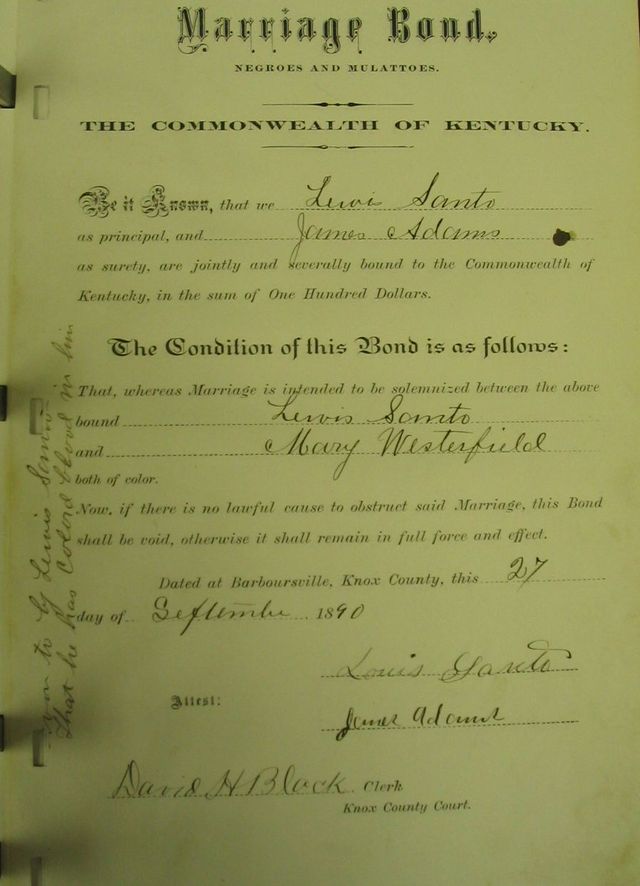 Marriage Bond,
NEGROES AND MULATTOES.
THE COMMONWEALTH OF KENTUCKY.
Be it Known, that we Lewis Santo
as principal, and James Adams
as surety, are jointly and severally bound to the Commonwealth of
Kentucky, in the sum of One Hundred Dollars.
The Condition of this Bond is as follows:
That, whereas Marriage is intended to be solemnized between the above
bound Lewis Santo
and Mary Westerfield
both of color.
Now, if there is no lawful cause to obstruct said Marriage, this Bond
shall be void, otherwise it shall remain in full force and effect.
Dated at Barboursville, Knox County, this 27
day of September 1890
Louis Santo
Attest:
James Adams
David H Black Clerk
Knox County Court.
to by Lewis Santo
that he has Colord blood in him